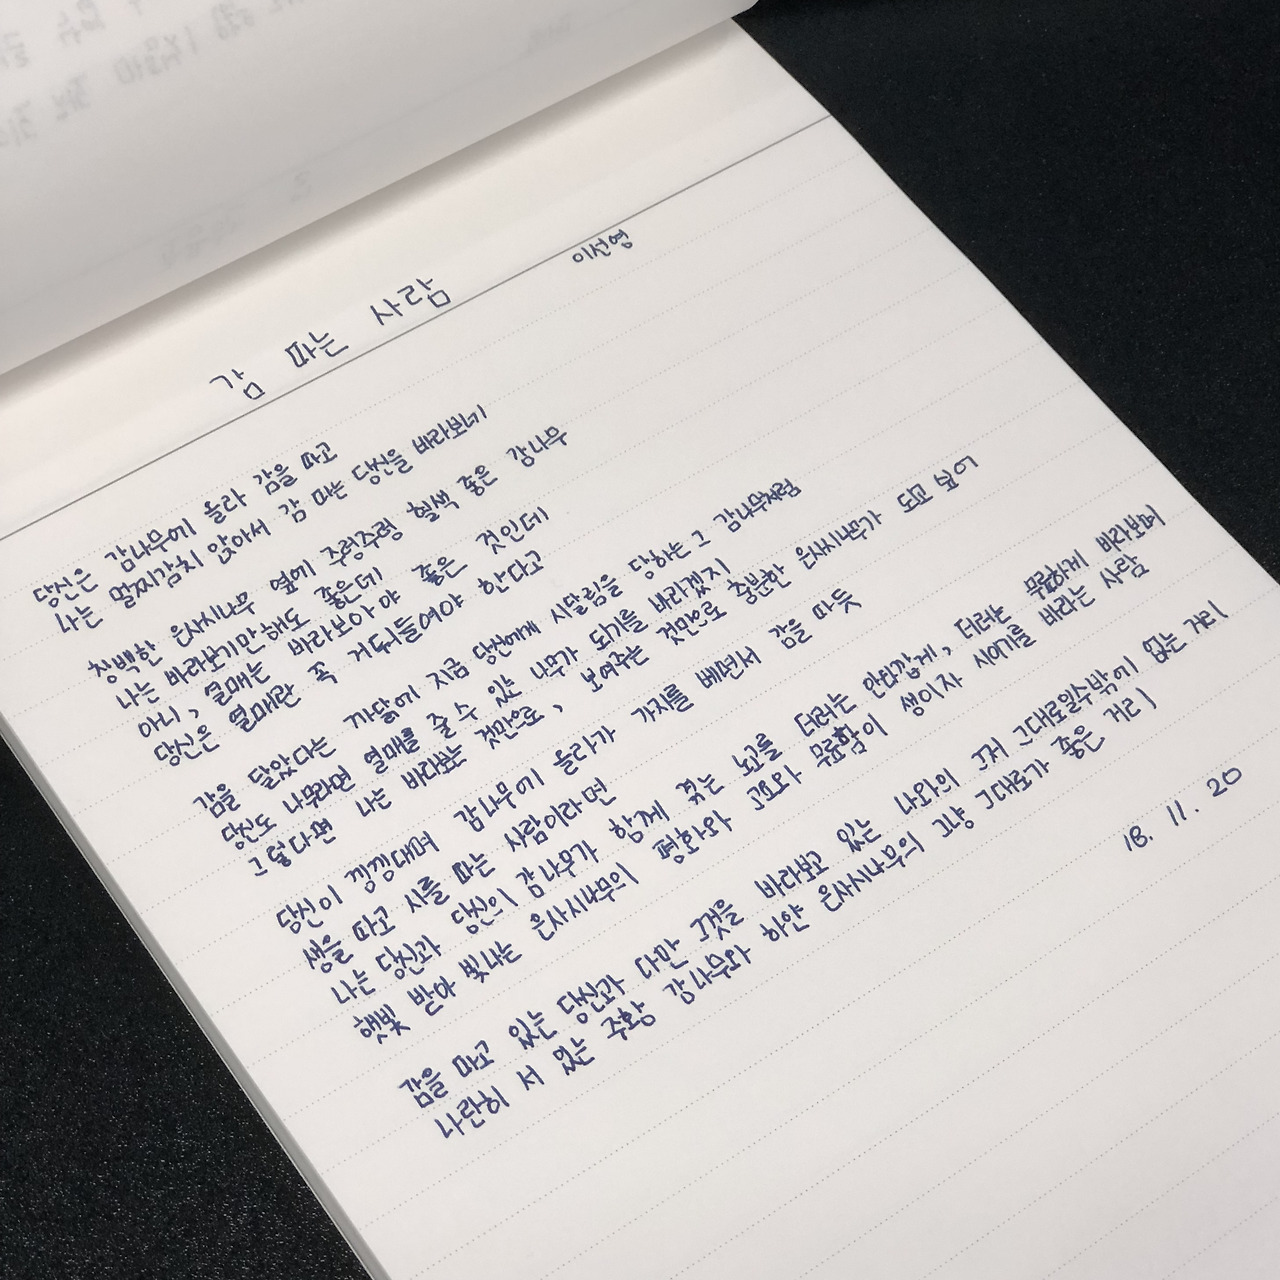 감 따는 사람
이선영
당신은 감나무에 올라 감을 따고
나는 멀찌감치 앉아서 감 따는 당신을 바라보기
창백한 은사시나무 옆에 주렁주렁 혈색 좋은 감나무
나는 바라보기만 해도 좋은데
아니, 열매는 바라보아야 좋은 것인데
당신은 열매란 꼭 거둬들여야 한다고
감을 달았다는 까닭에 지금 당신에게 시달림을 당하는 그 감나무처럼
당신도 나무라면 열매를 줄 수 있는 나무가 되기를 바라겠지
그렇다면 나는 바라보는 것만으로, 보여주는 것만으로 충분한 은사시나무가 되고 보아
당신이 낑낑대며 감나무에 올라가 가지를 베면서 감을 따듯
생을 따고 시를 따는 사람이라면
나는 당신과 당신의 감나무가 함께 겪는 노고를 더러는 안타깝게, 더러는 무료하게 바라보며
햇빛 받아 빛나는 은사시나무의 평화와 고요와 무료함이 생이자 시이기를 바라는 사람
감을 따고 있는 당신과 다만 그것을 바라보고 있는 나와의 그저 그대로일수밖에 없는 거리
나란히 서 있는 주황 감나무와 하얀 은사시나무의 그냥 그대로가 좋은 거리
18. 11. 20